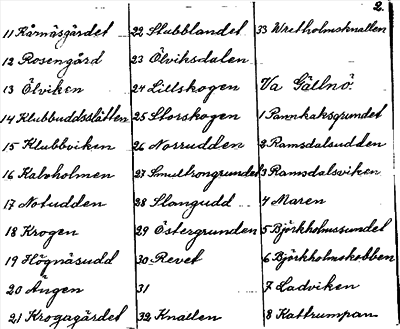 2.
11 Kårnäsgärdet
12 Rosengård
13 Ölviken
14 Klubbuddsslätten
15 Klubbviken
16 Kalvholmen
17 Notudden
18 Krogen
19 Högnäsudd
20 Ängen
21 Krogagärdet
22 Stubblandet
23 Ölviksdalen
24 Lillskogen
25 Storskogen
26 Norrudden
27 Smultrongrundet
28 Slangudd
29 Östergrunden
30 Revet
31
32 Knallen
33 Wretholmsknallen
Va Gällnö:
1 Pannkaksgrundet
2 Ramsdalsudden
3 Ramsdalsviken
4 Maren
5 Björkholmssundet
6 Björkholmskobben
7 Ladviken
8 Kattrumpan